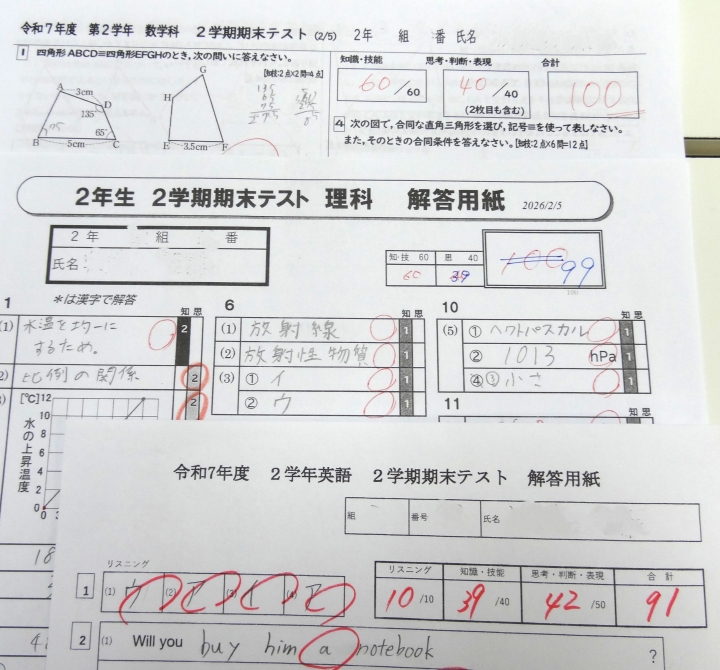 令和7年度 第2学年 数学科 2学期期末テスト (2/5) 2年 組 番 氏名
1 四角形ABCD≡四角形EFGHのとき,次の問いに答えなさい。
[知技:2点×2問=4点]
A 3cm D 135° 65° B 5cm C
G H E 3.5cm F
知識・技能 思考・判断・表現 合計
60/60 40/40 100
(2枚目も含む)
4 次の図で,合同な直角三角形を選び,記号≡を使って表しなさい。
また,そのときの合同条件を答えなさい。[知技:2点×6問=12点]
2年生 2学期期末テスト 理科 解答用紙 2026/2/5
2年 組 番
氏名
知・技 60 思 40
60 39 99
100
1 *は漢字で解答
知 思
(1) 水温を均一に
するため。 2
2) 比例の関係 2
2
[℃] 12
10
8
6
4
2
0
水の上昇温度
6 知 思
(1) 放射線 1
(2) 放射性物質 1
(3) ① イ 1
② ウ 1
10 知 思
(5) ① ヘクトパスカル 1
② 1013 hPa 1
小さ
11 知 思
令和7年度 2学年英語 2学期期末テスト 解答用紙
組 番号 氏名
リスニング
1 (1) ウ (2) (4)
リスニング 知識・技能 思考・判断・表現 合計
10/10 39/40 42/50 91
2 (1) Will you buy him a notebook ?